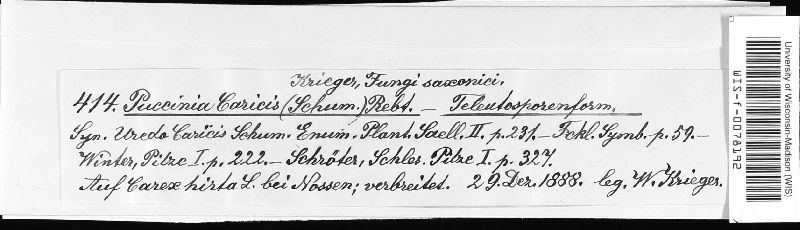 Krieger, Fungi saxonici.
414. Puccinia Caricis (Schum.) Rebt. – Teleutosporenform.
Syn. Uredo Caricis Schum. Enum. Plant. Saell. II. p. 231. – Fckl. Symb. p. 59. –
Winter, Pilze I. p. 222. – Schröter, Schles. Pilze I. p. 327.
Auf Carex hirta L. bei Nossen; verbreitet. 29. Dez. 1888. leg. W. Krieger.
WIS-f-0078192
University of Wisconsin-Madison (WIS)